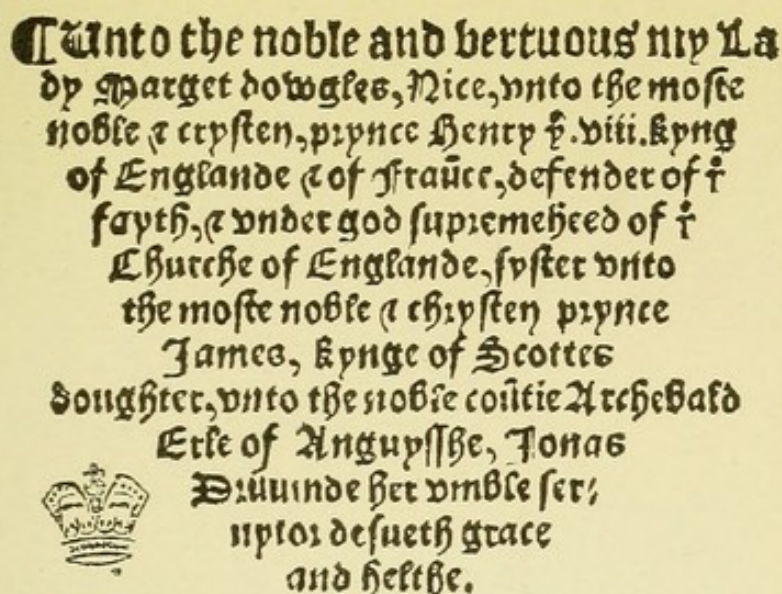 ¶Unto the noble and vertuous my La
dy Marget dowgles, Nice, vnto the moste
noble & crysten, prynce Henry yͤ .viii. kyng
of Englande & of Fraūce, defender of yͤ
fayth, & vnder god supremeheed of yͤ
Churche of Englande, syster vnto
the moste noble & chrysten prynce
James, kynge of Scottes
doughter, vnto the noble coūtie Archebald
Erle of Anguysshe, Jonas
Druuinde her vmble ser⸗
uytor desueth grace
and helthe.